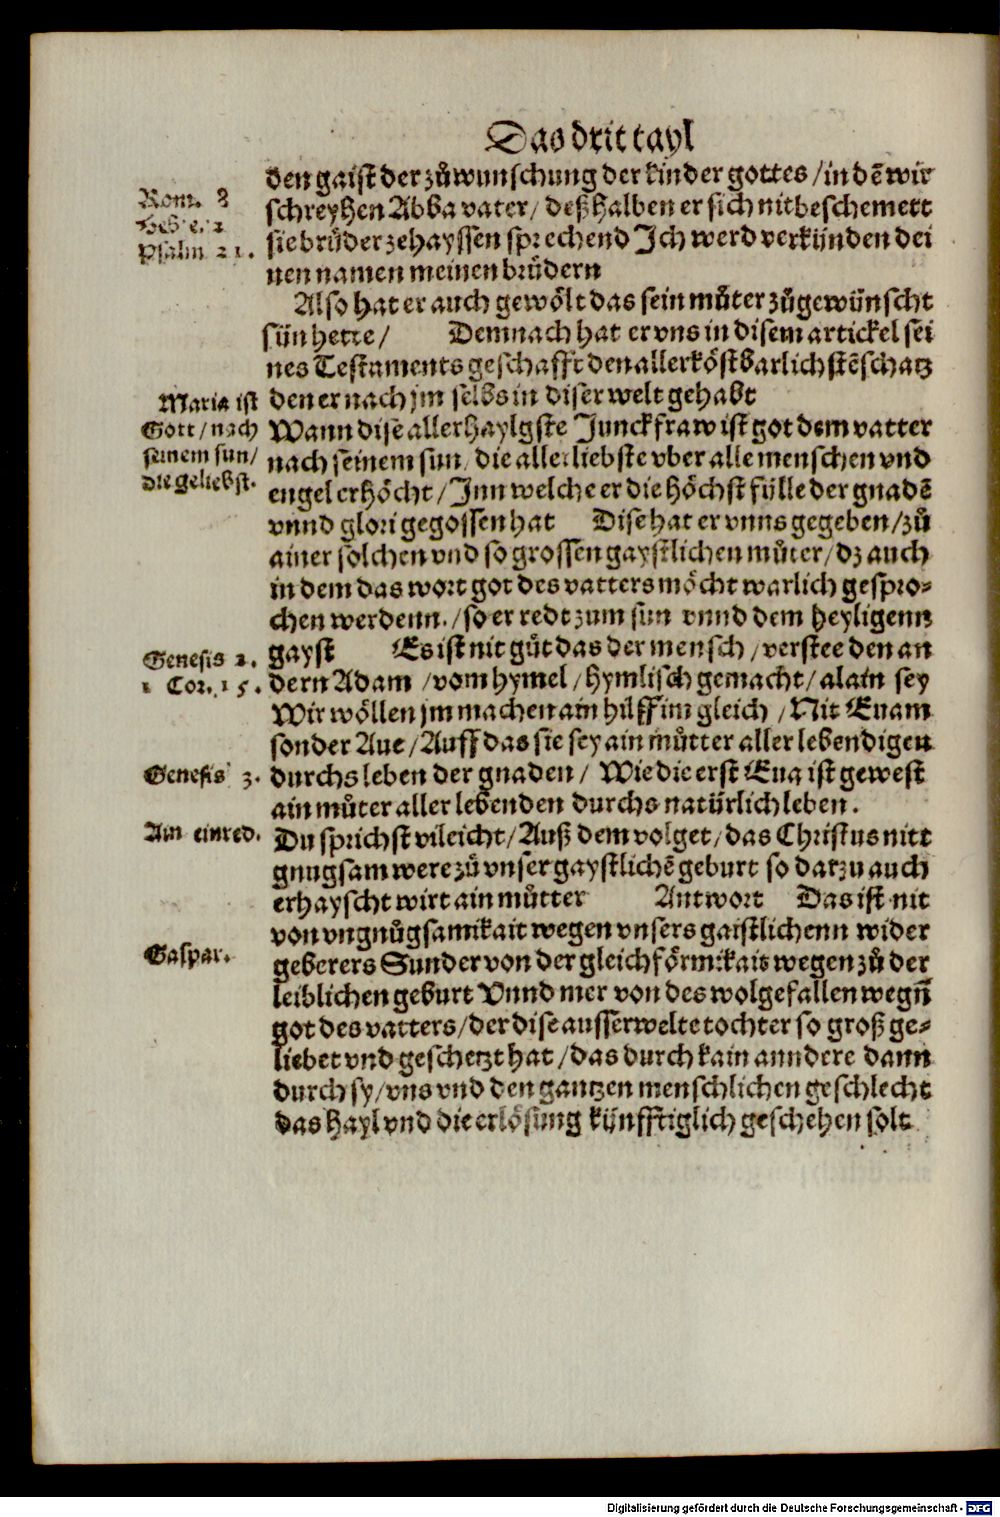 Das drit tayl
den gaist der zůwunschung der kinder gottes / in dē wir
Rom. 8
schreyhen Abba vater / deßhalben er sich nit beschemett
Hebre. 2
sie brůder zehayssen sprechend Ich werd verkünden dei
Psalm 21.
nen namen meinen brůdern
Also hat er auch gewölt das sein můter zůgewünscht
sün hette / Demnach hat er vns in disem artickel sei
nes Testaments geschafft den allerköstbarlichstē schatz
Maria ist
den er nach jm selbs in diser welt gehabt
Gott / nach
Wann dise allerhaylgste Junckfraw ist got dem vatter
seinem sun /
nach seinem sun / die allerliebste vber alle menschen vnd
die geliebst.
engel erhöcht / Inn welche er die höchst fülle der gnadē
vnnd glori gegossen hat Dise hat er vnns gegeben / zů
ainer solchen vnd so grossen gaystlichen můter / dz auch
in dem das wort got des vatters möcht warlich gespro-
chen werdenn. / so er redt zum sun vnnd dem heyligenn
Genesis 2.
gayst Es ist nit gůt das der mensch / verstee den an
1 Cor. 15.
dern Adam / vom hymel / hymlisch gemacht / alain sey
Wir wöllen jm machen ain hilff im gleich / Nit Euam
sonder Aue / Auff das sie sey ain můtter aller lebendigen
Genesis 3.
durchs leben der gnaden / Wie die erst Eua ist gewest
ain můter aller lebenden durchs natürlich leben.
Ain einred.
Du sprichst vileicht / Auß dem volget / das Christus nitt
gnugsam were zů vnser gaystlichē geburt so darzu auch
erhayscht wirt ain můtter Antwort Das ist nit
von vngnůgsamkait wegen vnsers gaistlichenn wider
Gaspar.
geberers Sunder von der gleichförmikait wegen zů der
leiblichen geburt Vnnd mer von des wolgefallen wegn̄
got des vatters / der dise ausserwelte tochter so groß ge-
liebet vnd geschetzt hat / das durch kain anndere dann
durch sy / vns vnd den gantzen menschlichen geschlecht
das hayl vnd die erlösung künfftiglich geschehen solt
Digitalisierung gefördert durch die Deutsche Forschungsgemeinschaft - DFG